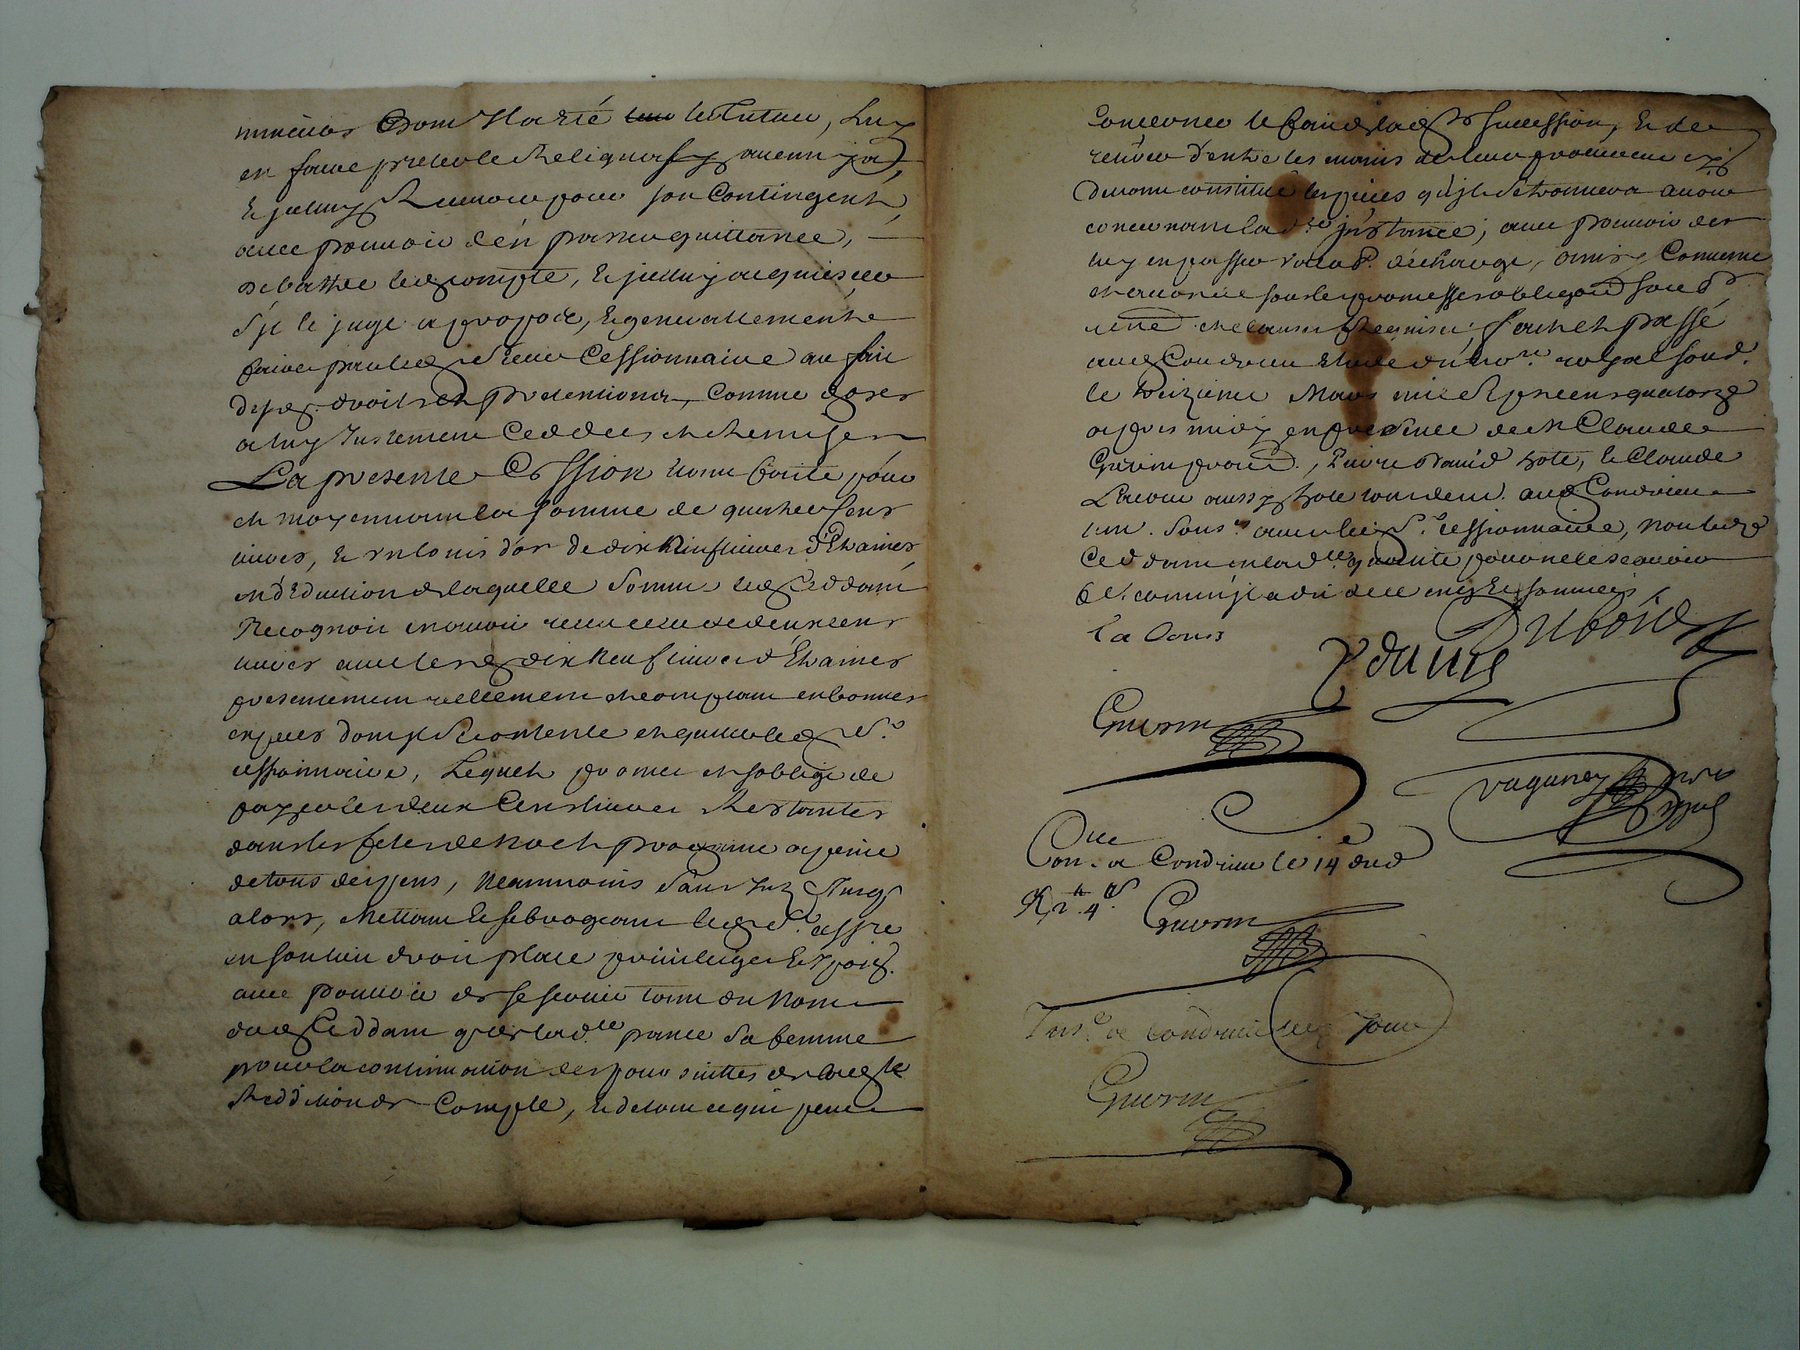 mineurs dont Il a esté le Tuteur, Luy
en faire prester le Reliqua sy aucun y a,
Et jceluy Recevoir pour son Contingent,
avec pouvoir d'en passer quittance,
debattre led. compte, Et jceluy acquiescer
s'jl le juge a propos, Et generallement
faire par led. sieur Cessionnaire au fait
desd. droits et pretentions, Comme choses
a luy Justement Ceddées et Remises
La presente Cession Venue faitte pour
et moyennant la somme de quatre Cens
livres, Et un louis d'or de dix Neuf livres d'Etraines
en déduction de laquelle somme led. Ceddant
Recognoit en avoir receu celle de deux cens
livres avec lesd. dix Neuf livres d'Etraines
presentement reellement et comptant en bonnes
especes dont jl se contente et quitte led. sr.
cessionnaire, Lequel promet et s'oblige de
payer les deux Cens livres Restantes
dans les festes de Noel prochaine a peine
de tous despens, Neanmoins sans
alors, Mettant Et subrogeant led. sr. cessre
en son lieu droit place privilege Et
avec pouvoir de se servir tant du Nom
dud. Ceddant que de lad. sa femme
pour la continuation des poursuittes de lad.
Reddition de Compte, Et de tout ce qui peut
Concerner le fait de lad. succession, Et de
retirer d'entre les mains de leur procureur
devant constitué les pieces qu'jl se trouvera avoir
concernant lad. jnstance, avec pouvoir de
luy en passer decharge, ainsy Convenu
et accordé sous les promesses obligaons
et clauses Requises. fait et passé
aud. Condrieu Etude du nore. royal soub.
le treizieme Mars mil sept cens quatorze
apres midy en presence de Me Claude
Guerin pratn., Pierre David hote, Et Claude
aussy hote tous dem. aud. Condrieu
sous. avec led. sr. cessionnaire, non led.
Ceddant enquis Et sommés
Dubois
P david
Guerin
vaganay nore
royal
Con. a Condrieu le 14 dud
Guerin
Ins. de Condrieu led. jour
Guerin